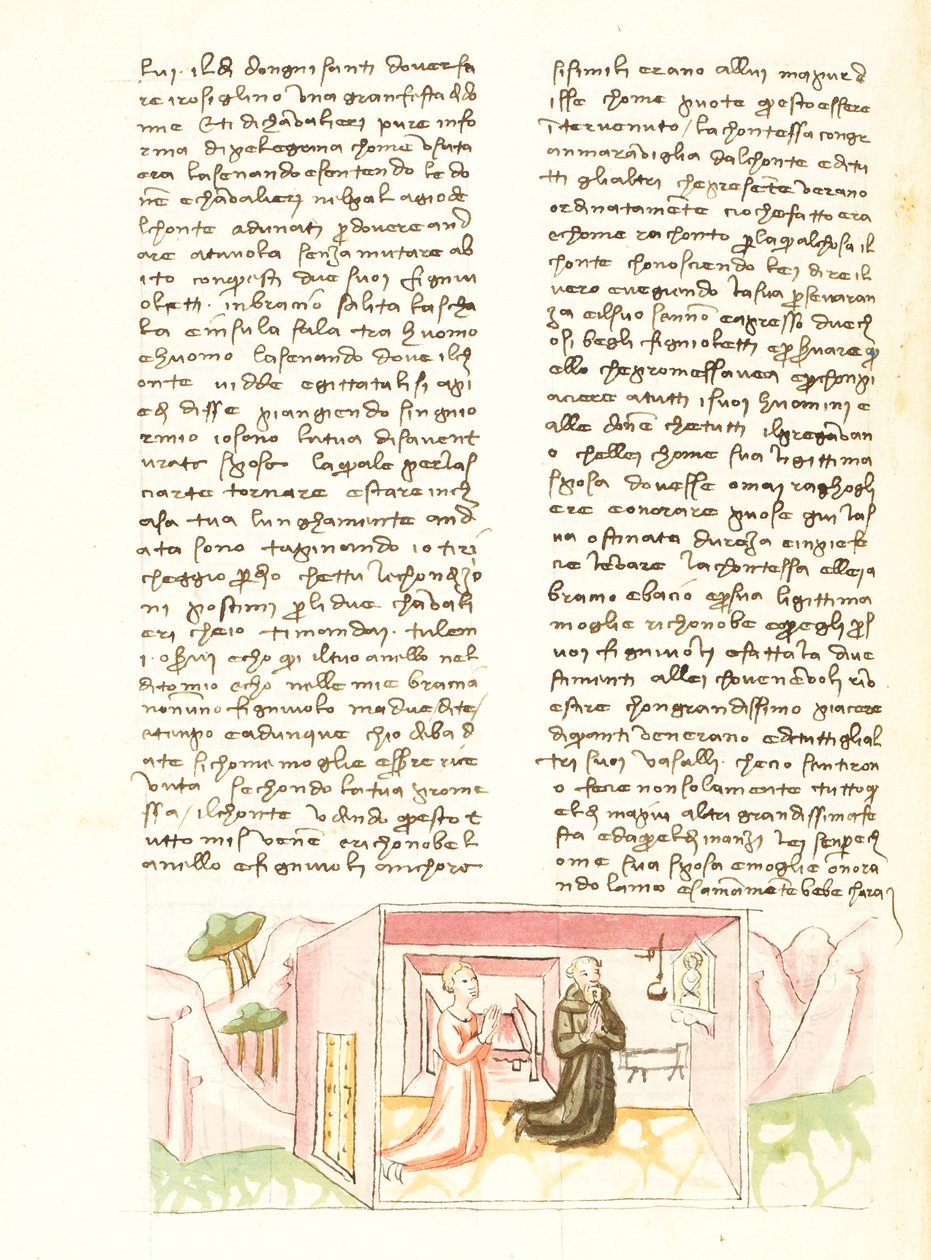 lui · il di dongni santi dover fa
re i rosiglino una gran festa di do
nne & ti di chavalieri pure info
rma di pelegrina chome usata
era lasenando e sentendo le do
ne e chavalieri nel palagio de
lchonte adunati p dovere and
are atavola senza mutare ab
ito con questi due suoi figniu
oletti · inbracio salita la scha
la e insu la sala tra huomo
e huomo lasenando dove il ch
onte vidde e gittatalisi api
edi disse piangiendo singnio
rmio io sono la tua disavent
urata sposa la quale per las
ciarte tornare e stare inch
asa tua lunghamente and
ata sono tapinando io ti ri
cheggio p dio chettu le chondizio
ni postimi p li due chavali
eri che io ti mandai · tu le m
i · osservi echo qui il tuo anello nel
dito mio echo nelle mie bracia
non uno figniuolo ma due di te /
e tenpo e adunque chio debba d
ate si chome moglie essere rice
vuta sechondo la tua prome
ssa / il chonte udendo questo t
utto misvene e richonobe l
anello e figniuoli anchora
si simili erano allui ma pur d
isse chome puote questo essere
intervenuto / la chontessa congr
an maraviglia dal chonte e di tu
tti gli altri che presente verano
ordinatamente cio che fatto era
e chome rachonto p la qual chosa il
chonte chonosciendo lei dire il
vero e vegiendo la sua p severan
za e il suo senno e apresso due ch
osi begli figniuoletti e p servare qu
ello che promessavea e p chonpi
aciere a tutti i suoi huomini e
alle done che tutti il pregavan
o che llei chome sua ligittima
sposa dovesse omai raghogli
ere e onorare puose giu las
ua ostinata dureza e in pie fe
cie levare la chontessa e lleia
bracio e bacio e p sua ligittima
moglie richonobe e quegli p s
uoi figniuoli e fatta la due
stimenti allei chonvenevoli riv
estire chon grandissimo piacere
di quanti venerano e di tutti gli al
tri suoi vasalli · che cio sentiron
o fecie non solamente tutto q
el di ma piu altri grandissima fe
sta e da quel di inanzi lei senpre ch
ome sua sposa e moglie onora
ndo lamo e somamente lebe chara